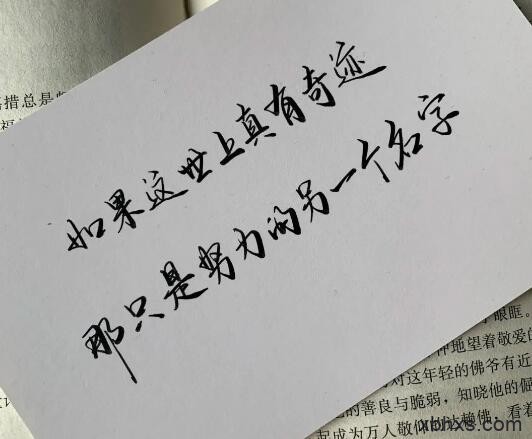 措总是
福
如果这世上真有奇迹
那只是努力的另一个名字
眼眶。
仲地望着敬爱的
对这年轻的佛爷有近
的善良与脆弱，知晓他的倔
起成为万人敬仰的达赖佛，看着
xbhxs.com